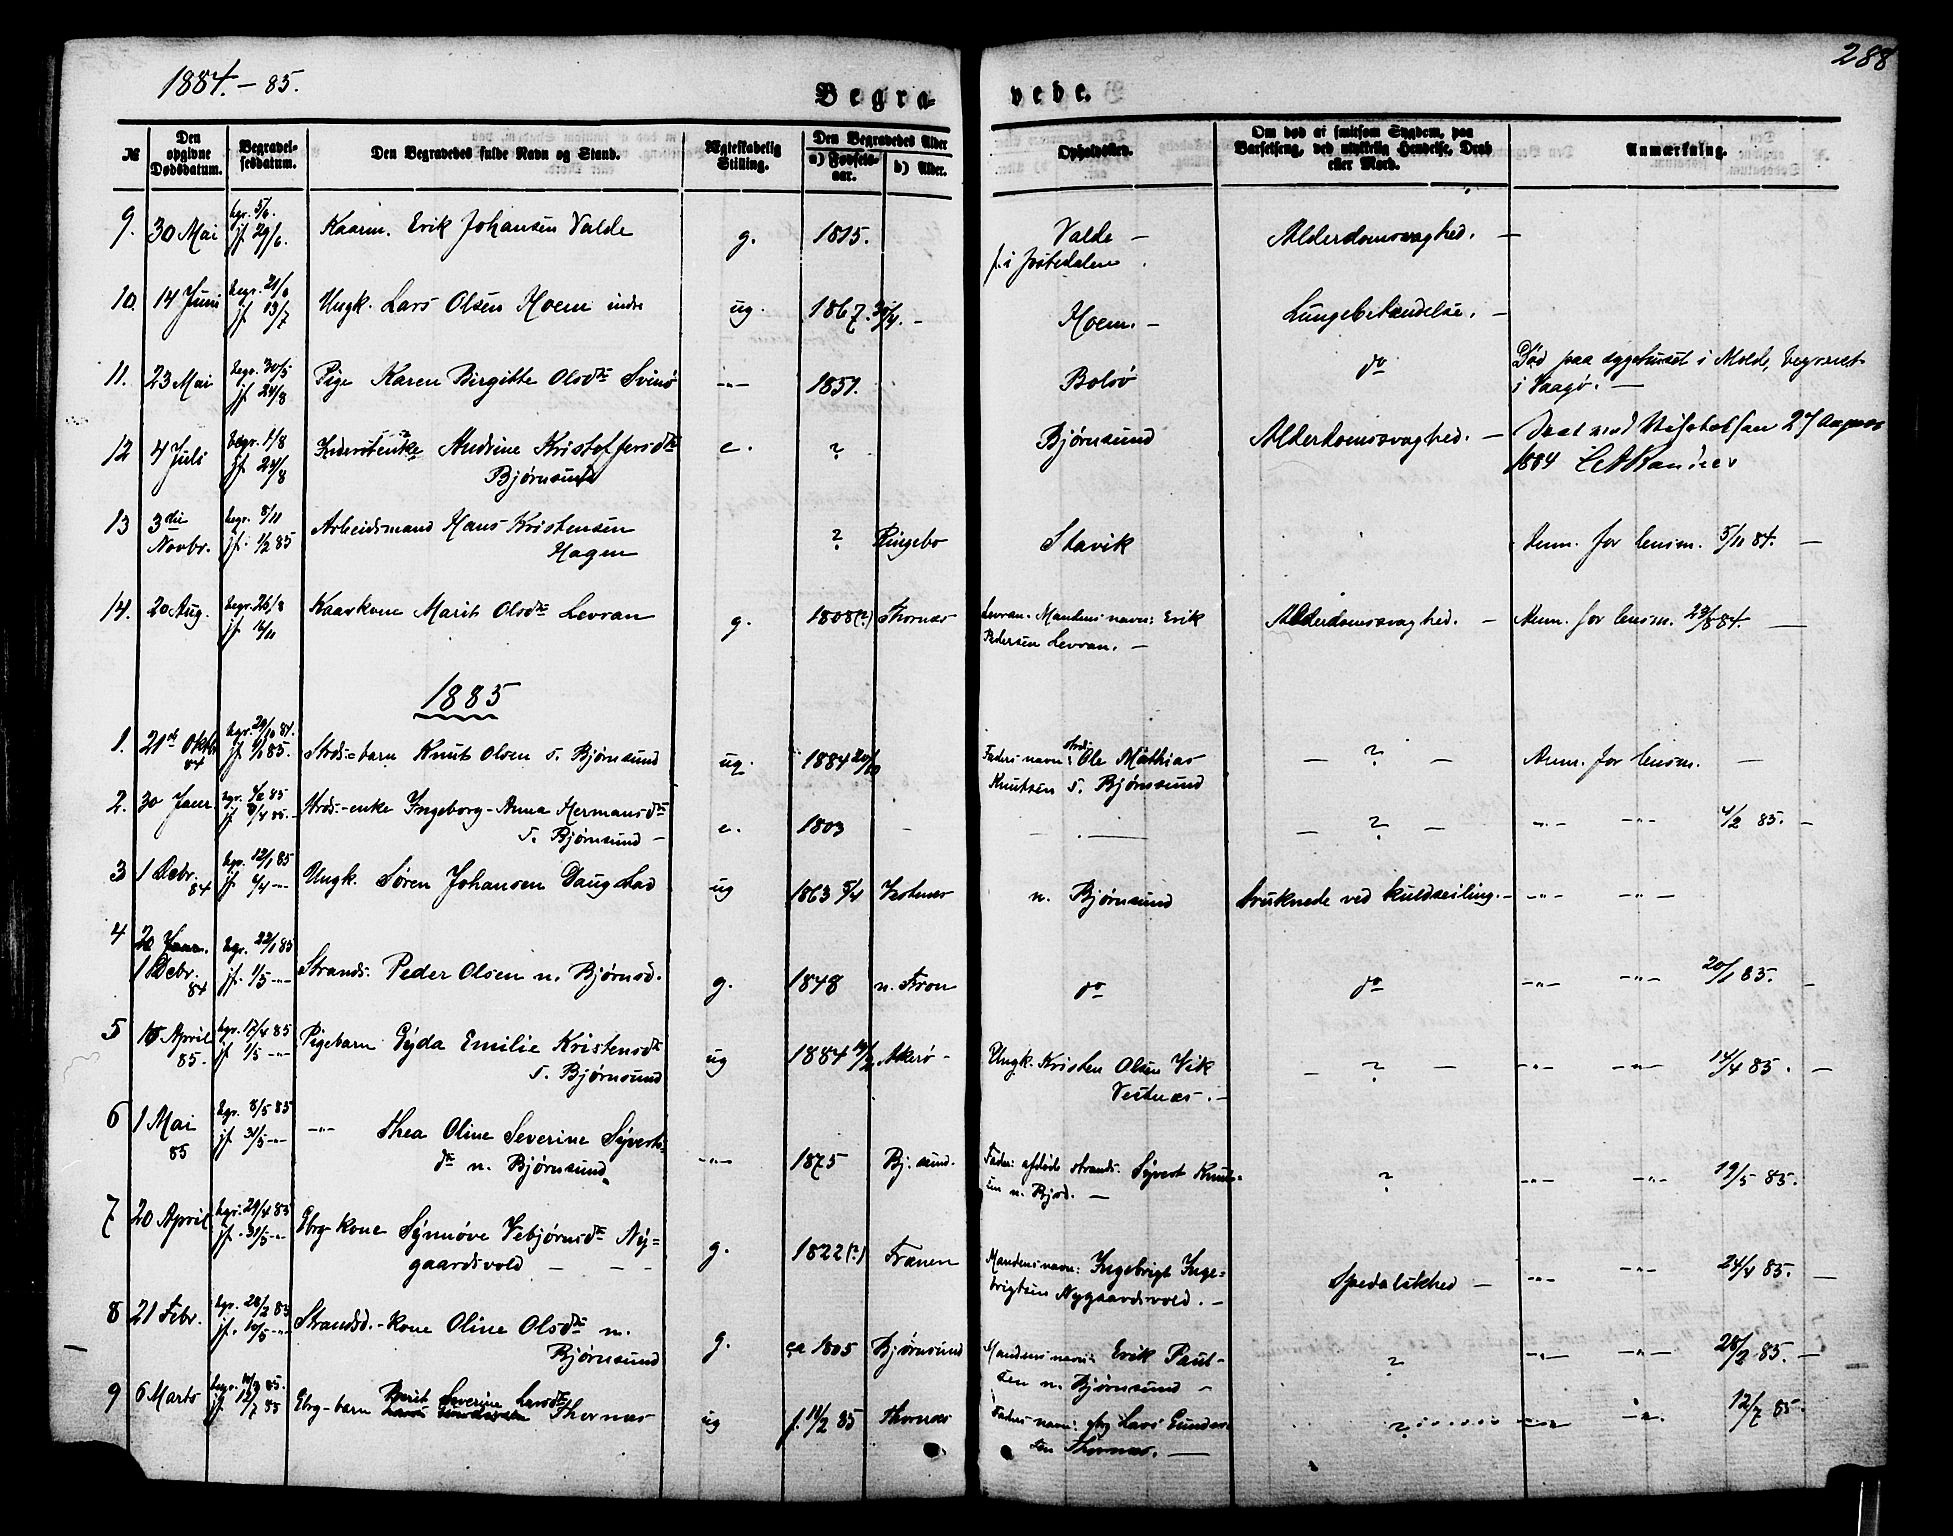 1884.-85.
288
Begra-
vede.
№
Den opgivne Dødsdatum.
Begravelsesdatum.
Den Begravedes fulde Navn og Stand.
Ægteskabelig Stilling.
Den Begravedes Alder
a) Fødselsaar.
b) Alder.
Opholdssted.
Om død af smitsom Sygdom, paa Barselseng, ved ulykkelig Hendelse, Drab eller Mord.
Anmærkning.
9. 30 Mai begr. 5/6. jf. 29/6. Kaarm. Erik Johansen Valde g. 1815. Valde - f. i Jostedalen. Alderdomssvaghed. -
10. 14 Juni begr. 21/6 jf 13/7 Ungk. Lars Olsen Hoem indre ug. 1867. 30/4. - Hoem. - Lungebetændelse. -
11. 23 Mai begr. 30/5 jf. 24/8 Pige Karen Birgitte Olsdtr Svinø -"- 1851. Bolsø do Død paa sygehuset i Molde, begravet
i Vaagø. -
12 4 Juli begr. 1/8 jf. 24/8 Andrine Kristoffersdtr
Bjørnsund e. ? Bjørnsund Alderdomssvaghed. - 27 August
1884
13 3die Novbr. begr. 8/11 jf. 1/2 85 Arbeidsmand Hans Kristensen
Hagen ? Ringebo Stavik Anm. for lensm. 5/11 84. -
14. 20 Aug. begr. 26/8 jf. 16/11 Kaarkone Marit Olsdtr Levran g. 1808(?) Thornæs Levran. Mandens navn: Erik
Pedersen Levran. - Alderdomssvaghed. - Anm. for lensm. 23/8 84. -
1885
1. 21de Oktbr 84 begr. 29/10 84. jf. 85. Strds.-barn Knut Olsen s. Bjørnsund ug. 1884 20/10 Faders navn: strds. Ole Mathias
Knutsen s. Bjørnsund - ? - Anm. for lensm. -
2. 30 Janr begr. 4/2 85 jf. 85. Strds.-enke Ingeborg-Anna Hermansdtr
s. Bjørnsund - e. 1803 - - . - - ? - -"- -"- 4/2 85. -
3 1 Decbr. 84 begr. 12/1 85 jf. 4/4 -"- Ungk. Søren Johansen Daugstad ug 1863 5/4 Vestnæs n. Bjørnsund Druknede ved kuldseiling. - -"- -"-
4 20 Janr. 1 Decbr. 84 begr. 22/1 85 jf. 1/5 -"- Strands. Peder Olsen n. Bjørnsd. g. 1848 n. Fron do do -"- -"- 20/1 85. -
5 10 April 85. begr. 17/4 85 jf. 1/5 -"- Pigebarn Gyda Emilie Kristensdtr
s. Bjørnsund ug 1884 Akerø - Ungk. Kristen Olsen Vik
Vestnæs. - - ? - -"- -"- 14/4 85. -
6 1 Mai 85 begr. 8/5 85 jf. 31/5 -"- -"- Thea Oline Severine Syverts-
dtr n. Bjørnsund. -"- 1875 Bj.sund. Fader: afdøde strands. Syvert Knut-
sen n. Bjsd. - ? -"- -"- 19/5 85.
7 20 April begr. 29/4 85 jf. 31/5 -"- Gbrg-kone Synnøve Vebjørnsdtr Ny=
gaardsvold - - - g. 1822(?) Frænen Mandens navn: Ingebrigt Inge-
brigtsen Nygaardsvold. - Spedalskhed - -"- -"- 24/4 85. -
8 21 Febr. begr. 28/2 85 jf. 10/5 -"- Strandsd.-kone Oline Olsdtr n.
Bjørnsund g. ca 1805 Bjørnsund Mandens navn: Erik Paul-
sen n. Bjørnsund - ? -"- -"- 28/2 85. -
9 6 Marts begr. 85. jf. 12/7 85 Gbrg-barn Berit Severine Larsdtr Thornæs ug f. 85 Thornæs Faders navn: gbg Lars Gunder-
sen Thornæs. - ? -"- -"- 12/7 85.